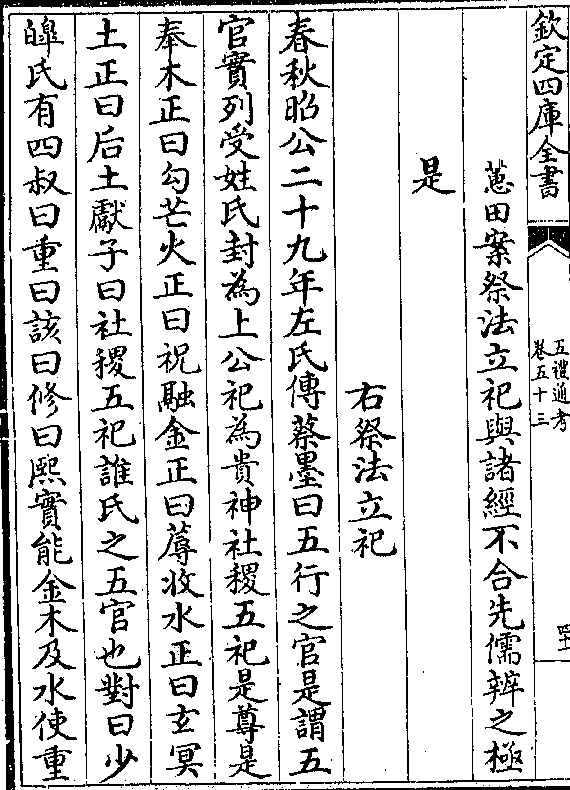 欽定四庫全書
五禮通考
卷五十三
蕙田案祭法立祀與諸經不合先儒辨之極
是
右祭法立祀
春秋昭公二十九年左氏傳蔡墨曰五行之官是謂五
官實列受姓氏封為上公祀為貴神社稷五祀是尊是
奉木正曰勾芒火正曰祝融金正曰蓐收水正曰玄冥
土正曰后土獻子曰社稷五祀誰氏之五官也對曰少
皥氏有四叔曰重曰該曰修曰熙實能金木及水使重